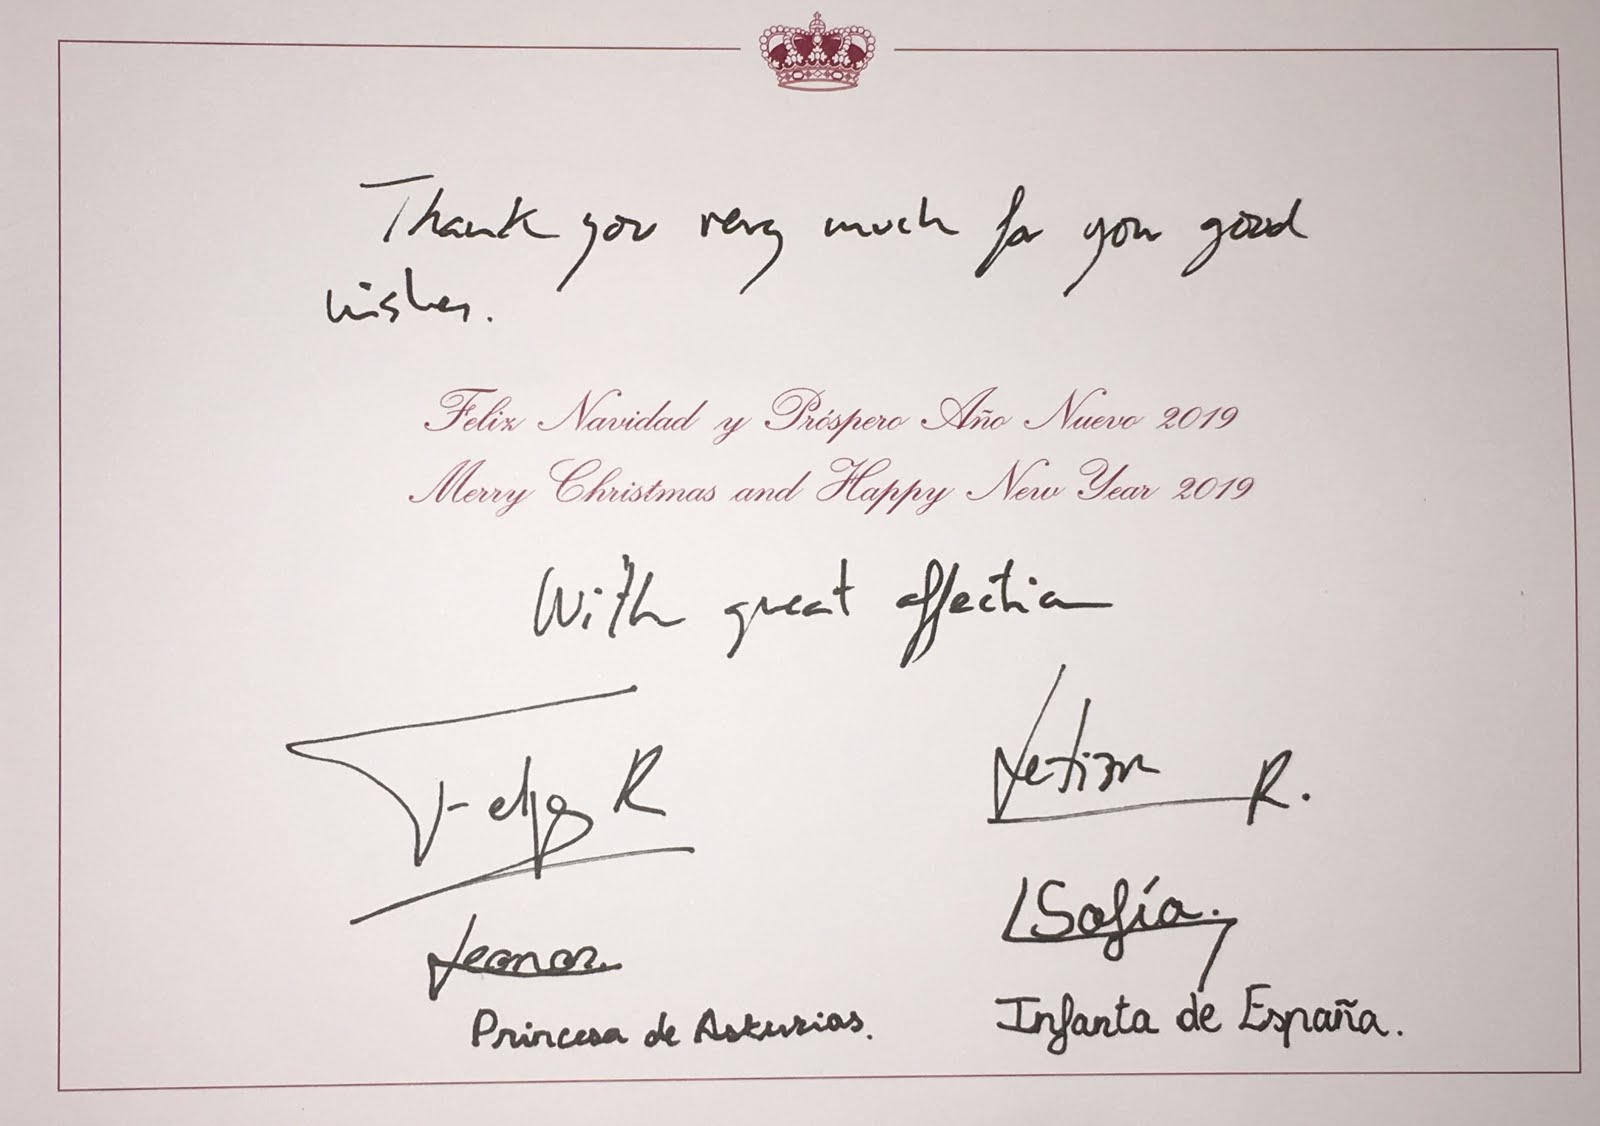 Thank you very much for your good
wishes.
Feliz Navidad y Próspero Año Nuevo 2019
Merry Christmas and Happy New Year 2019
With great affection
Felipe R
Letizia R.
Leonor.
Sofía.
Princesa de Asturias.
Infanta de España.